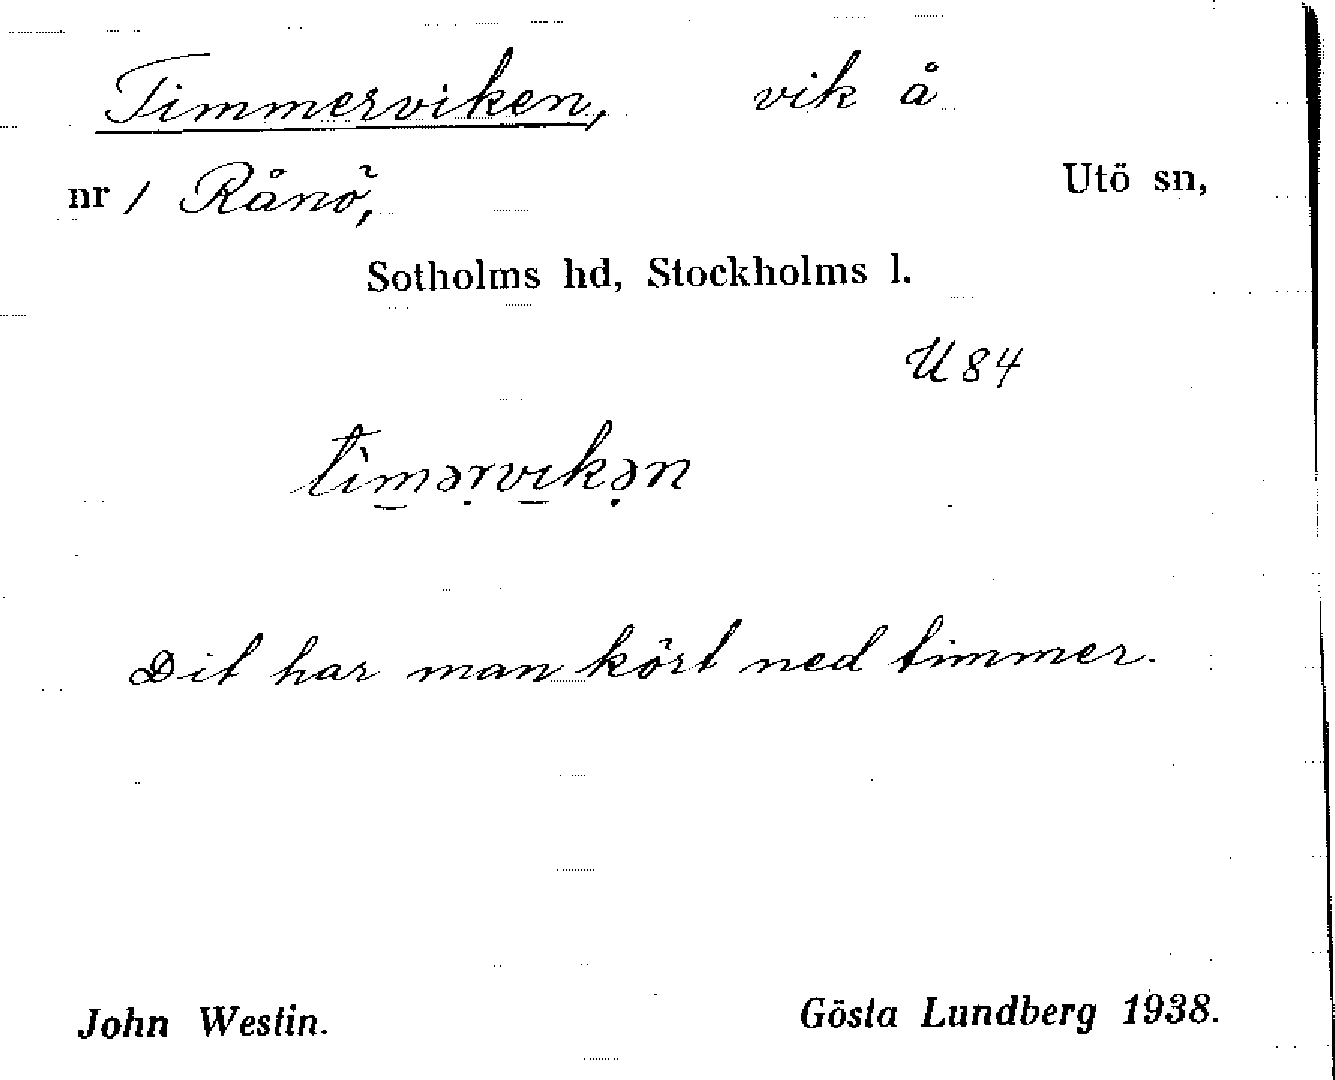 Timmerviken, vik å
nr 1 Rånö, Utö sn,
Sotholms hd, Stockholms l.
U 84
tìmərvıkən
Dit har man kört ned timmer.
John Westin. Gösta Lundberg 1938.